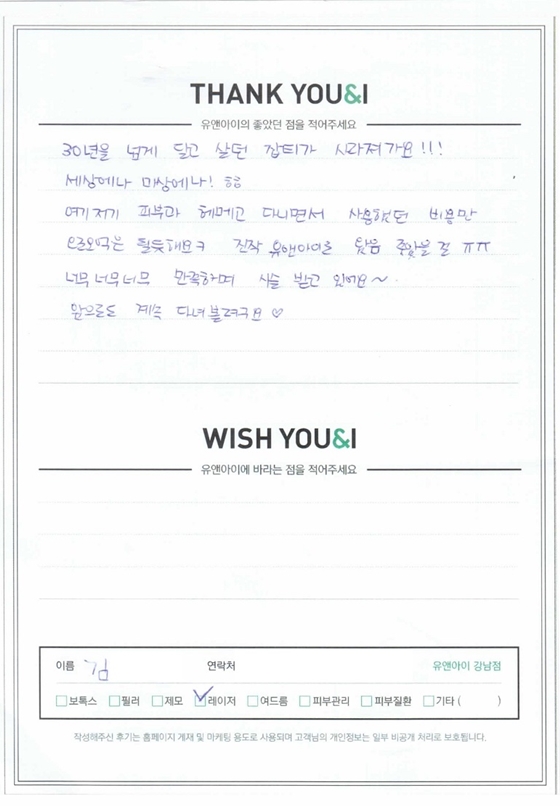 THANK YOU&I
유앤아이의 좋았던 점을 적어주세요
30년을 넘게 달고 살던 잡티가 사라져가요!!!
세상에나 미상에나! ㅎㅎ
여기저기 피부과 헤메고 다니면서 사용했던 비용만
은 될듯해요ㅋ 진작 유앤아이를 왔음 좋았을 걸 ㅠㅠ
너무너무너무 만족하며 시술 받고 있어요~
앞으로도 계속 다녀볼려구요♡
WISH YOU&I
유앤아이에 바라는 점을 적어주세요
이름 김 연락처 유앤아이 강남점
보톡스 필러 제모 레이저 여드름 피부관리 피부질환 기타 ( )
작성해주신 후기는 홈페이지 게재 및 마케팅 용도로 사용되며 고객님의 개인정보는 일부 비공개 처리로 보호됩니다.